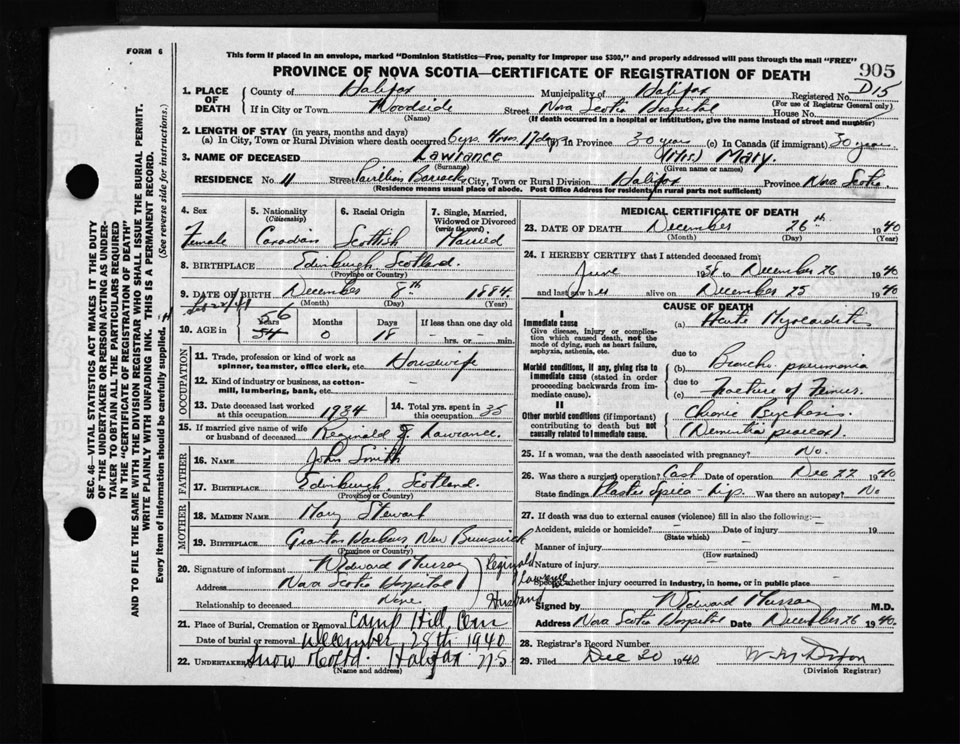 FORM 6
This form if placed in an envelope, marked "Dominion Statistics—Free, penalty for improper use $300," and properly addressed will pass through the mail "FREE"
PROVINCE OF NOVA SCOTIA—CERTIFICATE OF REGISTRATION OF DEATH
905
1. PLACE OF DEATH
County of Halifax Municipality of Halifax Registered No. D15
(For use of Registrar General only)
If in City or Town Woodside Street Nova Scotia Hospital House No.
(Name) (If death occurred in a hospital or institution, give the name instead of street and number)
2. LENGTH OF STAY (in years, months and days)
(a) In City, Town or Rural Division where death occurred 6 yrs. 4 mos. 17 days (b) In Province 30 years (c) In Canada (if immigrant) 30 years
3. NAME OF DECEASED Lawrance (Mrs) Mary.
(Surname) (Given name or names)
RESIDENCE No. 11 Street Pavillion Barracks City, Town or Rural Division Halifax Province Nova Scotia.
(Residence means usual place of abode. Post Office Address for Residents in rural parts not sufficient)
4. Sex
Female
5. Nationality
(Citizenship)
Canadian
6. Racial Origin
Scottish
7. Single, Married, Widowed or Divorced
(write the word)
Married
8. BIRTHPLACE Edinburgh Scotland.
(Province or Country)
9. DATE OF BIRTH December 8th 1884
(Month) (Day) (Year)
10. AGE in
56
Years Months Days If less than one day old
54 0 18 hrs. or min.
OCCUPATION
11. Trade, profession or kind of work as spinner, teamster, office clerk, etc. Housewife
12. Kind of industry or business, as cotton-mill, lumbering, bank, etc. —
13. Date deceased last worked at this occupation 1934
14. Total yrs. spent in this occupation 35
15. If married give name of wife or husband of deceased Reginald J. Lawrance.
FATHER
16. NAME John Smith
17. BIRTHPLACE Edinburgh Scotland.
(Province or Country)
MOTHER
18. MAIDEN NAME Mary Stewart
19. BIRTHPLACE Granton Harbour New Brunswick
(Province or Country)
20. Signature of informant W Edward Murray
Address Nova Scotia Hospital
Relationship to deceased None
Reginald Lawrance Husband
21. Place of Burial, Cremation or Removal Camp Hill Cem
Date of burial or removal December 28th 1940
22. UNDERTAKER Snow & Co Ltd. Halifax N S
(Name and address)
MEDICAL CERTIFICATE OF DEATH
23. DATE OF DEATH December 26th 1940
(Month) (Day) (Year)
24. I HEREBY CERTIFY that I attended deceased from:
June to December 26 1940
and last saw her alive on December 25 1940
CAUSE OF DEATH
I
Immediate cause
Give disease, injury or complication which caused death, not the mode of dying, such as heart failure, asphyxia, asthenia, etc.
(a) Acute Myocarditis
due to
Morbid conditions, if any, giving rise to immediate cause (stated in order proceeding backwards from immediate cause).
(b) Broncho pneumonia
due to
(c) Fracture of Femur.
II
Other morbid conditions (if important) contributing to death but not causally related to immediate cause.
Chronic Psychosis
(Dementia praecox).
25. If a woman, was the death associated with pregnancy? No.
26. Was there a surgical operation? Cast Date of operation Dec 22 1940
State findings Plaster spica - hip. Was there an autopsy? No
27. If death was due to external causes (violence) fill in also the following:—
Accident, suicide or homicide? — Date of injury 19
(State which)
Manner of injury
(How sustained)
Nature of injury
Specify whether injury occurred in industry, in home, or in public place
Signed by W Edward Murray M.D.
Address Nova Scotia Hospital Date December 26 1940.
28. Registrar's Record Number
29. Filed Dec 30 1940
(Division Registrar)
SEC. 46—VITAL STATISTICS ACT MAKES IT THE DUTY
OF THE UNDERTAKER OR PERSON ACTING AS UNDER-
TAKER TO OBTAIN ALL THE PARTICULARS REQUIRED
IN THE "CERTIFICATE OF REGISTRATION OF DEATH"
AND TO FILE THE SAME WITH THE DIVISION REGISTRAR WHO SHALL ISSUE THE BURIAL PERMIT.
WRITE PLAINLY WITH UNFADING INK. THIS IS A PERMANENT RECORD.
Every item of information should be carefully supplied. (See reverse side for instructions.)